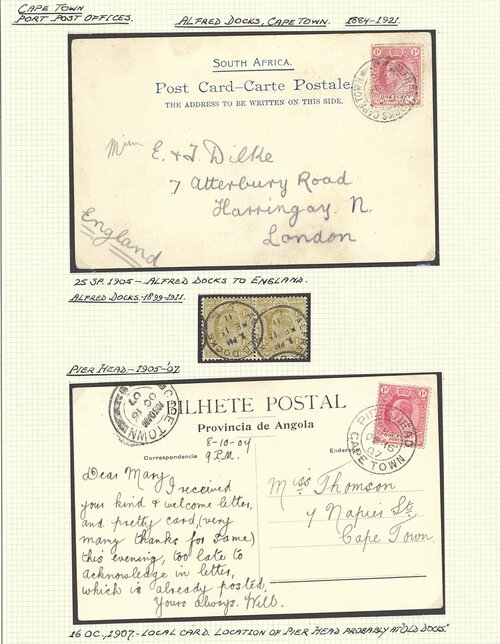 CAPE TOWN
PORT POST OFFICES.
ALFRED DOCKS, CAPE TOWN. 1884-1921.
SOUTH AFRICA.
Post Card–Carte Postale
THE ADDRESS TO BE WRITTEN ON THIS SIDE.
E. & J. Dilke
7 Atterbury Road
Harringay N.
London
England
25 SP. 1905 – ALFRED DOCKS TO ENGLAND.
ALFRED DOCKS.-1899-1911.
PIER HEAD – 1905-'07.
CAPE TOWN
OC 16
07
BILHETE POSTAL
Provincia de Angola
8-10-07
Correspondencia
9 P.M.
PIER HEAD
OC 16
07
CAPE TOWN
Dear Mary
I received
your kind & welcome letter,
and pretty card, (very
many thanks for same)
this evening, too late to
acknowledge in letter,
which is already posted,
Yours always. Will.
Miss Thomson
7 Napier St.
Cape Town.
16 OC., 1907. – LOCAL CARD. LOCATION OF PIER HEAD PROBABLY AT "OLD DOCKS."